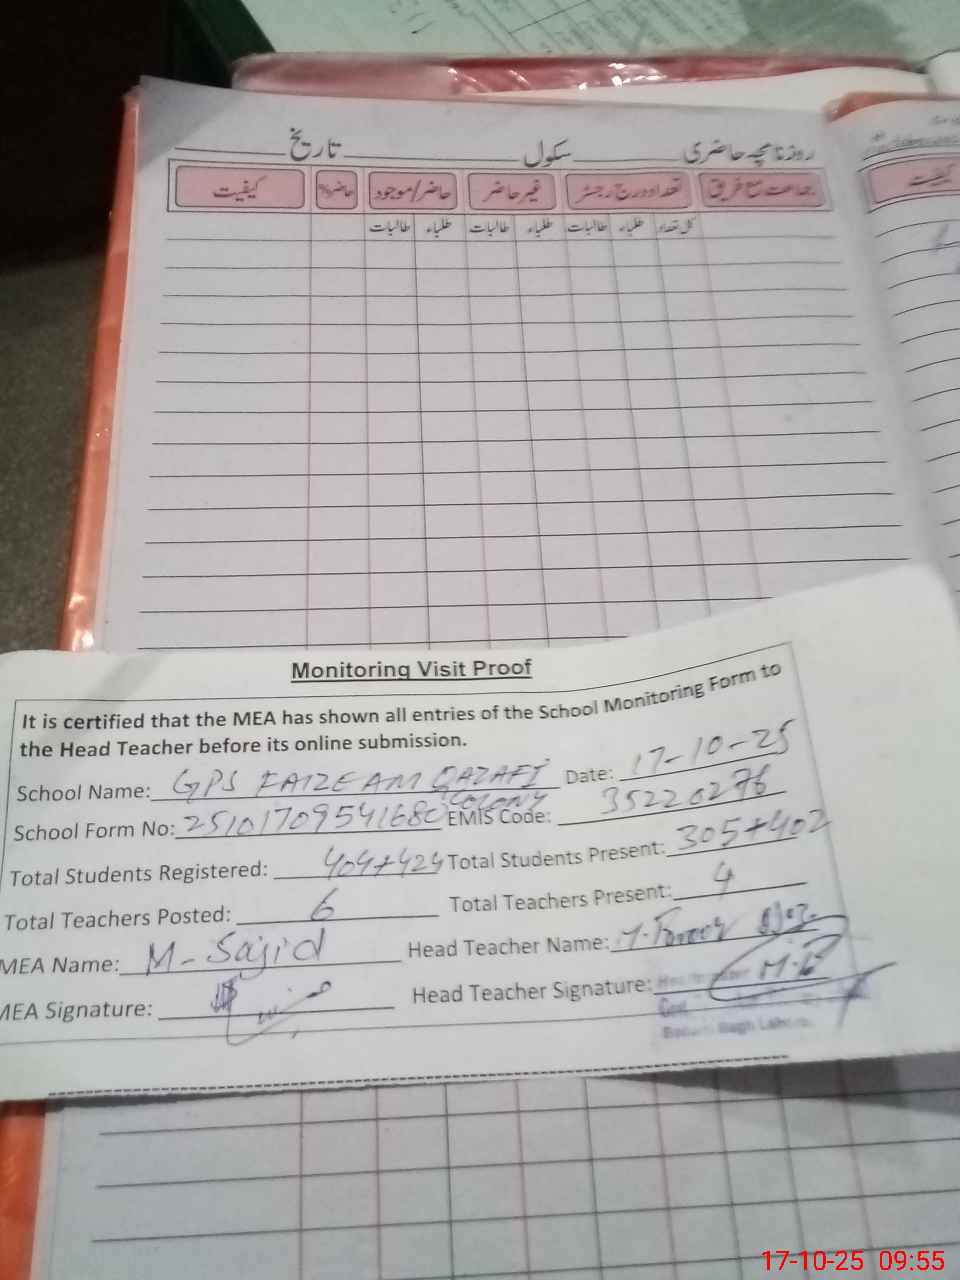 روزنامچہ حاضری ــــــ سکول ــــــ تاریخ ــــــ
جماعت مع فریق تعداد درج رجسٹر غیر حاضر حاضر/موجود حاضر% کیفیت
کل تعداد طلباء طالبات طلباء طالبات طلباء طالبات
کیفیت
Monitoring Visit Proof
It is certified that the MEA has shown all entries of the School Monitoring Form to
the Head Teacher before its online submission.
School Name: GPS FAIZEAM QAZAFI Date: 17-10-25
Colony
School Form No: 2510170954168 EMIS Code: 35220276
Total Students Registered: 404+424 Total Students Present: 305+402
Total Teachers Posted: 6 Total Teachers Present: 4
MEA Name: M-Sajid Head Teacher Name: M.
MEA Signature: Head Teacher Signature:
Bagh Lahore.
17-10-25 09:55